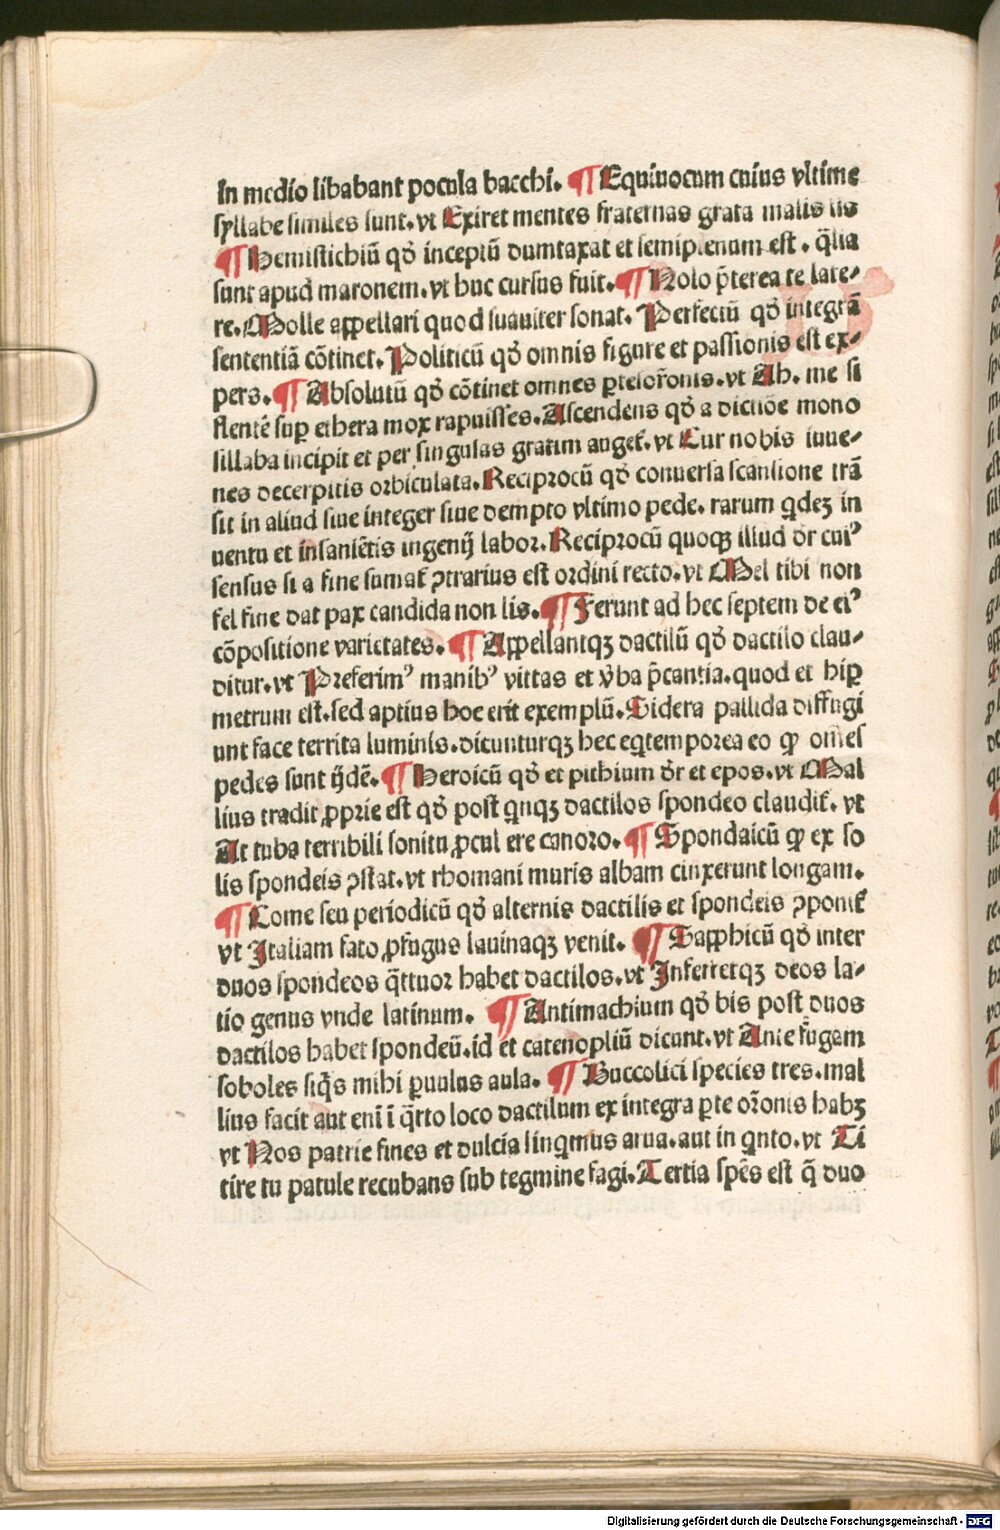 In medio libabant pocula bacchi. ¶ Equiuocum cuius vltime
syllabe similes sunt. vt Exiret mentes fraternas grata malis lis
¶ Hemistichiū qḋ inceptū dumtaxat et semiplenum est. q̄lia
sunt apud maronem. vt huc cursus fuit. ¶ Nolo p̄terea te late⸗
re. Molle appellari quod suauiter sonat. Perfectū qḋ integrā
sententiā cōtinet. Politicū qḋ omnis figure et passionis est ex⸗
pers. ¶ Absolutū qḋ cōtinet omnes ꝑtes or̄onis. vt Ah. me si
flentē suꝑ ethera mox rapuisses. Ascendens qḋ a dictiōe mono
sillaba incipit et per singulas gratim auget̄. vt Cur nobis iuue⸗
nes decerpitis orbiculata. Reciprocū qḋ conuersa scansione trā
sit in aliud siue integer siue dempto vltimo pede. rarum qdeꝫ in
uentu et insaniētis ingenij labor. Reciprocū quoqꝫ illud dr cuiꝰ
sensus si a fine sumat̄ ꝯtrarius est ordini recto. vt Mel tibi non
fel fine dat pax candida non lis. ¶ Ferunt ad hec septem de eiꝰ
cōpositione varietates. ¶ Appellantqꝫ dactilū qḋ dactilo clau⸗
ditur. vt Preferimꝰ manibꝰ vittas et v̄ba p̄cantia. quod et hiꝑ
metrum est. sed aptius hoc erit exemplū. Sidera pallida diffugi
unt face territa luminis. dicunturqꝫ hec eqtemporea eo ꝙ om̄es
pedes sunt ijdē. ¶ Heroicū qḋ et pithium dr̄ et epos. vt Mal
lius tradit ꝓprie est qḋ post qnqꝫ dactilos spondeo claudit̄. vt
At tuba terribili sonitu ꝓcul ere canoro. ¶ Spondaicū ꝙ ex so
lis spondeis ꝯstat. vt rhomani muris albam cinxerunt longam.
¶ Come seu periodicū qḋ alternis dactilis et spondeis ꝯponit̄
vt Italiam fato ꝓfugus lauinaqꝫ venit. ¶ Sapphicū qḋ inter
duos spondeos q̄ttuor habet dactilos. vt Inferretqꝫ deos la⸗
tio genus vnde latinum. ¶ Antimachium qḋ bis post duos
dactilos habet spondeū. id et catenopliū dicunt. vt Ante fugam
soboles siq̄s mihi ꝑuulus aula. ¶ Buccolici species tres. mal
lius facit aut enī ī q̄rto loco dactilum ex integra ꝑte or̄onis habꝫ
vt Nos patrie fines et dulcia linqmus arua. aut in qnto. vt Ti
tire tu patule recubans sub tegmine fagi. Tertia spēs est q̄ duo
Digitalisierung gefördert durch die Deutsche Forschungsgemeinschaft - DFG